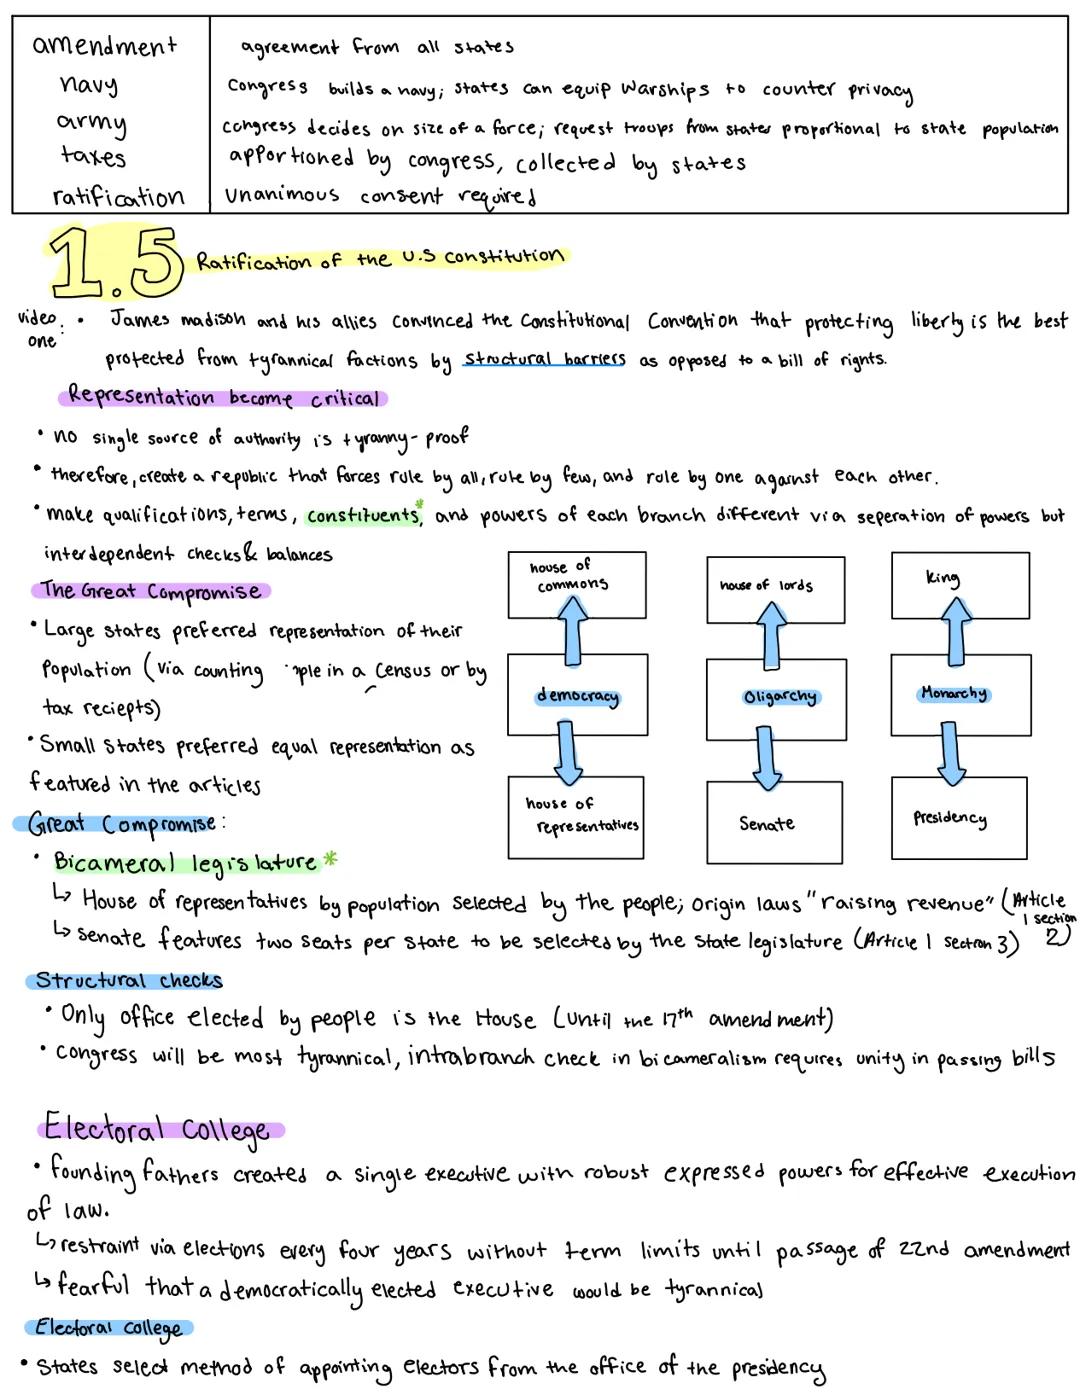 amendment agreement from all states
navy Congress builds a navy; states can equip warships to counter privacy
army congress decides on size of a force; request troups from states proportional to state population
taxes apportioned by congress, collected by states
ratification Unanimous consent required
1.5 Ratification of the U.S constitution
video one: • James madison and his allies convinced the Constitutional Convention that protecting liberty is the best
protected from tyrannical factions by structural barriers as opposed to a bill of rights.
Representation become critical
• no single source of authority is tyranny-proof
• therefore, create a republic that forces rule by all, rule by few, and rule by one against each other.
• make qualifications, terms, constituents*, and powers of each branch different via seperation of powers but
interdependent checks & balances
The Great Compromise
• Large states preferred representation of their
population (via counting ple in a census or by
tax reciepts)
• Small states preferred equal representation as
featured in the articles
house of
commons
house of lords
king
democracy
Oligarchy
Monarchy
house of
representatives
Senate
Presidency
Great Compromise:
• Bicameral legislature *
↳ House of representatives by population selected by the people; origin laws "raising revenue" (Article
1 section
2)
↳ senate features two seats per state to be selected by the state legislature (Article 1 section 3)
Structural checks
• Only office elected by people is the House (until the 17th amendment)
• congress will be most tyrannical, intrabranch check in bicameralism requires unity in passing bills
Electoral College
• founding fathers created a single executive with robust expressed powers for effective execution
of law.
↳ restraint via elections every four years without term limits until passage of 22nd amendment
↳ fearful that a democratically elected executive would be tyrannical
Electoral college
• States select method of appointing electors from the office of the presidency